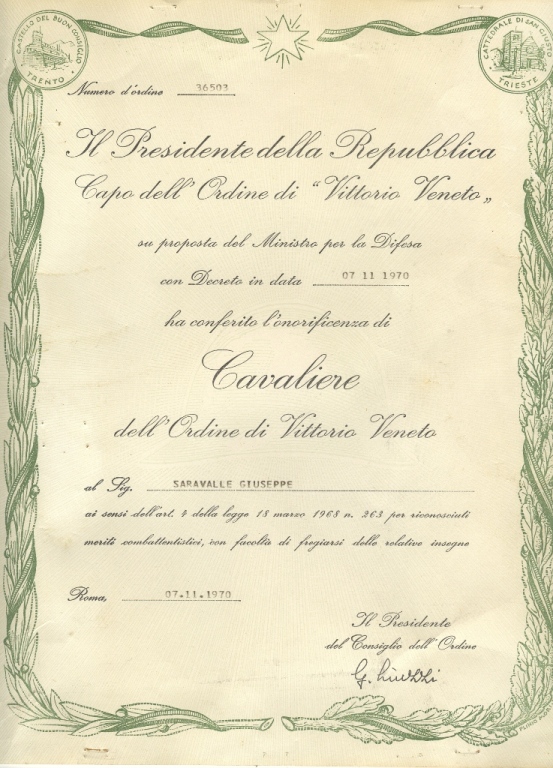 CASTELLO DEL BUON CONSIGLIO
TRENTO
CATTEDRALE DI SAN GIUSTO
TRIESTE
Numero d'ordine 36503
Il Presidente della Repubblica
Capo dell'Ordine di "Vittorio Veneto„
su proposta del Ministro per la Difesa
con Decreto in data 07 11 1970
ha conferito l'onorificenza di
Cavaliere
dell'Ordine di Vittorio Veneto
al Sig. SARAVALLE GIUSEPPE
ai sensi dell'art. 4 della legge 18 marzo 1968 n. 263 per riconosciuti
meriti combattentistici, con facoltà di fregiarsi delle relative insegne
Roma, 07.11.1970
Il Presidente
del Consiglio dell'Ordine
G. Liuzzi